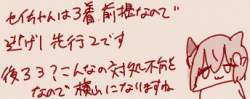 セイちゃんは3着前提なので
逃げ1先行2です
後ろ3?こんなの対処不能
なので横になりますね